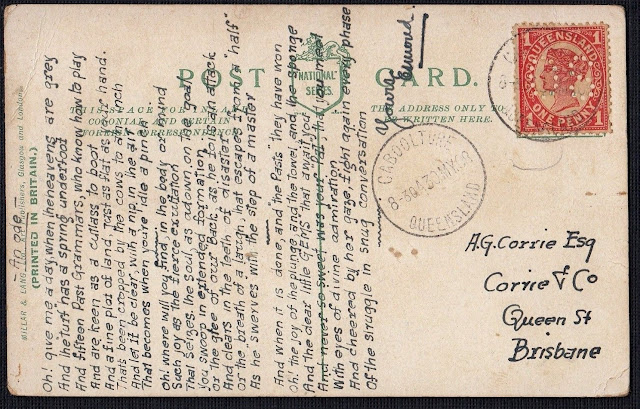 POST CARD.
NATIONAL SERIES.
THIS SPACE FOR INLAND
COLONIAL AND CERTAIN
FOREIGN CORRESPONDENCE.
THE ADDRESS ONLY TO
BE WRITTEN HERE.
MILLAR & LANG, Publishers, Glasgow and London.
(PRINTED IN BRITAIN.)
An ode
Oh! give me a day, when the heavens are grey
And the turf has a spring underfoot
And fifteen Past Grammars, who know how to play
And are keen as a cutlass to boot
And a fine plot of land, just as flat as your hand.
Thats been cropped by the cows to an inch
And let it be clear, with a nip in the air
That becomes when you're idle a pinch
Oh! where will you find, in the body or mind
Such joy as the fierce exultation
That seizes the soul, as adown on the goal
You swoop in extended formation
Or the glee of our Back, as he foils an attack
And clears in the teeth of disaster
Or the breath of a laugh, that escapes from a "half"
As he swerves with the step of a master
And when it is done, and the Pasts they have won
Oh! the joy of the plunge and the towel, and the sponge
And the dear little GEPS that await you
And never so sweet was your Pal that you meet
With eyes of divine admiration
And cheered by her gaze, fight again every phase
Of the struggle in snug conversation
Yours
QUEENSLAND
1 1
ONE PENNY
CABOOLTURE
QUEENSLAND
A.G. Corrie Esq
Corrie & Co
Queen St
Brisbane